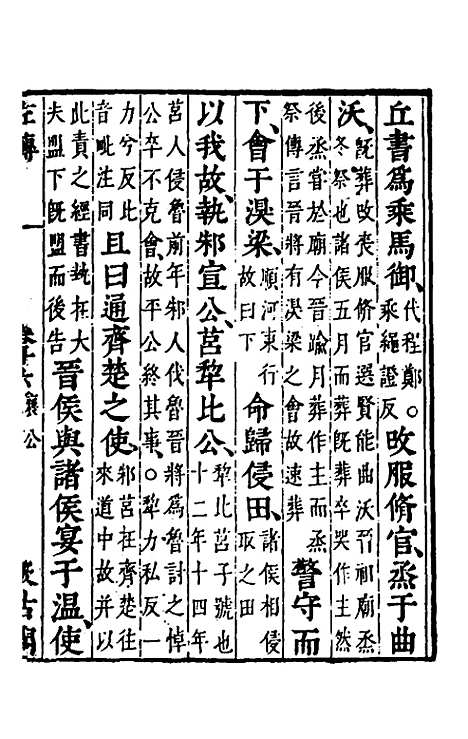 丘書爲乘馬御代程鄭○乘繩證反改服脩官烝于曲
沃旣葬改喪服脩官選賢能曲沃晉祖廟烝冬祭也諸侯五月而葬旣葬卒哭作主然
後烝嘗於廟今晉踰月葬作主而烝祭傳言晉將有湨梁之會故速葬警守而
下會于湨梁順河東行故曰下命歸侵田諸侯相侵取之田
以我故執邾宣公莒犂比公犂比莒子號也十二年十四年
莒人侵魯前年邾人伐魯晉將爲魯討之悼公卒不克會故平公終其事○犂力私反一
力兮反比音毗注同且曰通齊楚之使邾莒在齊楚往來道中故并以
此責之經書執在大夫盟下旣盟而後告晉侯與諸侯宴于溫使
左傳 卷三十三 襄公 汲古閣